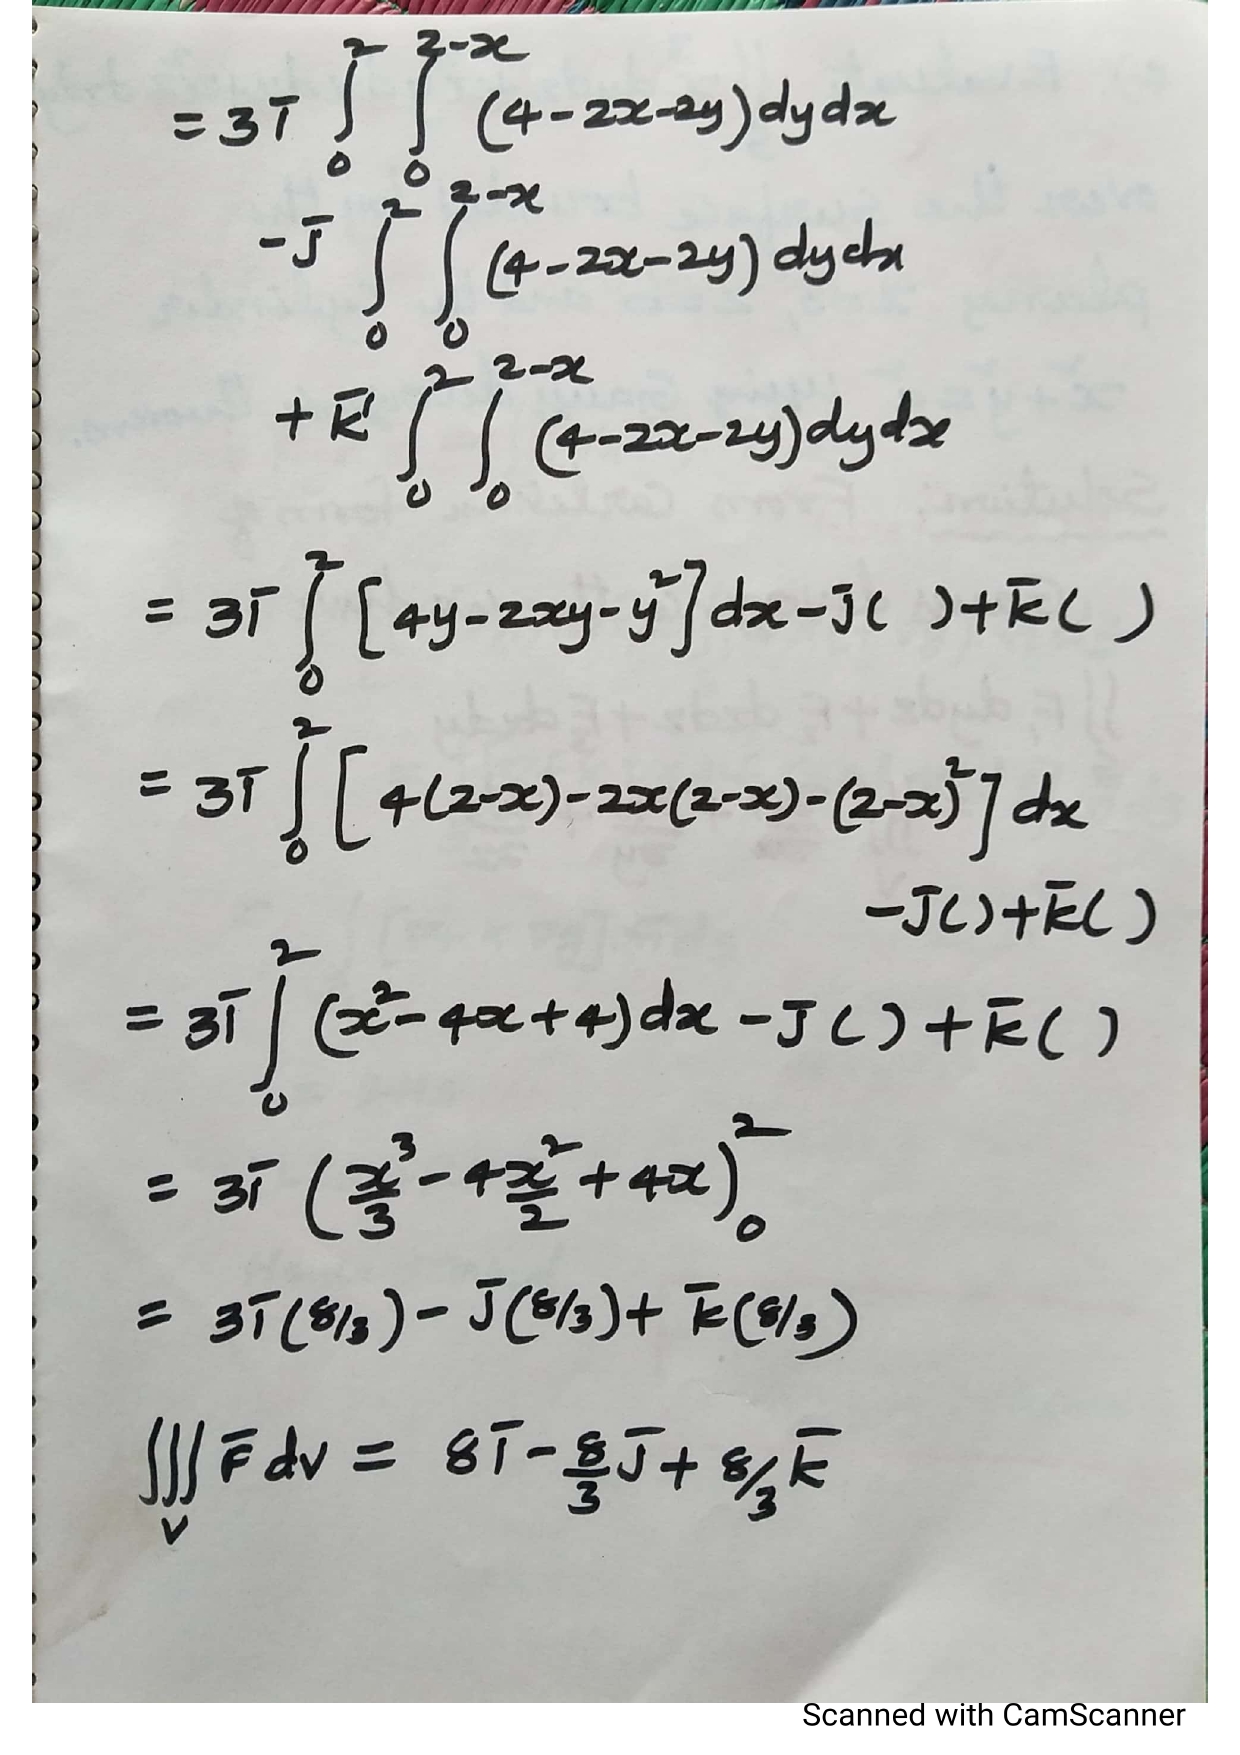 = 3ī ∫₀² ∫₀^{2-x} (4-2x-2y) dy dx
- j̄ ∫₀² ∫₀^{2-x} (4-2x-2y) dy dx
+ k̄ ∫₀² ∫₀^{2-x} (4-2x-2y) dy dx
= 3ī ∫₀² [4y-2xy-y²] dx - j̄( ) + k̄( )
= 3ī ∫₀² [4(2-x)-2x(2-x)-(2-x)²] dx
- j̄( ) + k̄( )
= 3ī ∫₀² (x²-4x+4) dx - j̄( ) + k̄( )
= 3ī (x³/3 - 4x²/2 + 4x)₀²
= 3ī(8/3) - j̄(8/3) + k̄(8/3)
∭_V F̄ dv = 8ī - 8/3 j̄ + 8/3 k̄
Scanned with CamScanner